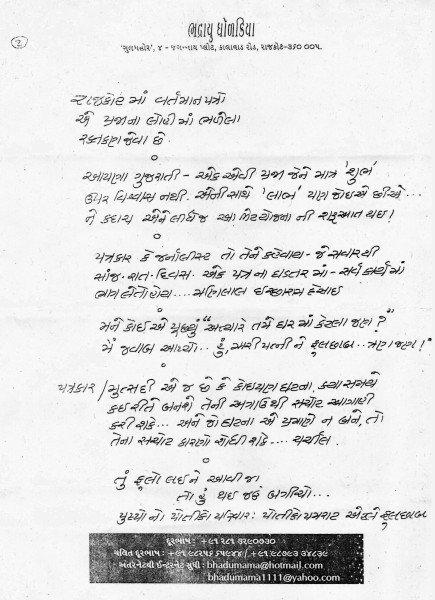 ભદ્રાયુ ધોળકિયા
'ગુલમહોર', ૪ - જગન્નાથ પ્લોટ, કાલાવાડ રોડ, રાજકોટ-૩૬૦ ૦૦૫.
2
રાજકોટ માં વર્તમાનપત્રો
એ પ્રજાના લોહીમાં ભળેલા
રક્તકણ જેવા છે.
આપણા ગુજરાતી - એક એવી પ્રજા જેને માત્ર 'શુભ'
ઉપર વિશ્વાસ નથી. એની સાથે 'લાભ' પણ જોઈએ છીએ...
ને કદાચ એને લીધે જ આ ભેટયોજના ની શરૂઆત થઇ!
પત્રકાર કે જર્નાલીસ્ટ તો તેને કહેવાય - જે સવારથી
સાંજ. રાત. દિવસ. એક પત્રના ઘડતરમાં - સર્વ કાર્યમાં
ભાગ લેતો હોય.... મણિલાલ ઇચ્છારામ દેસાઇ
મને કોઇ એ પૂછ્યું "અત્યારે તમે ઘર માં કેટલા જણ ?"
મેં જવાબ આપ્યો.. હું, મારી પત્ની ને ફૂલછાબ... ત્રણ જણ !
પત્રકાર / મુત્સદી એ જ છે કે કોઇપણ ઘટના, ક્યા સમયે
કઇ રીતે બનશે તેની અગાઉથી સચોટ આગાહી
કરી શકે... અને જો ઘટના એ પ્રમાણે ન બને, તો
તેના સચોટ કારણો શોધી શકે.... ચર્ચીલ.
તું ફૂલો લઇને આવી જા
તો હું થઇ જઉં બગીચો...
પુષ્પો નો પોતીકો પરિવાર: પોતીકો પમરાટ એટલે ફૂલછાબ
દૂરભાષ : +૯૧ ૨૮૧
ચલિત દૂરભાષ :
ઈન્ટરનેટ સુધી : bhadumama@hotmail.com
bhadumama1111@yahoo.com